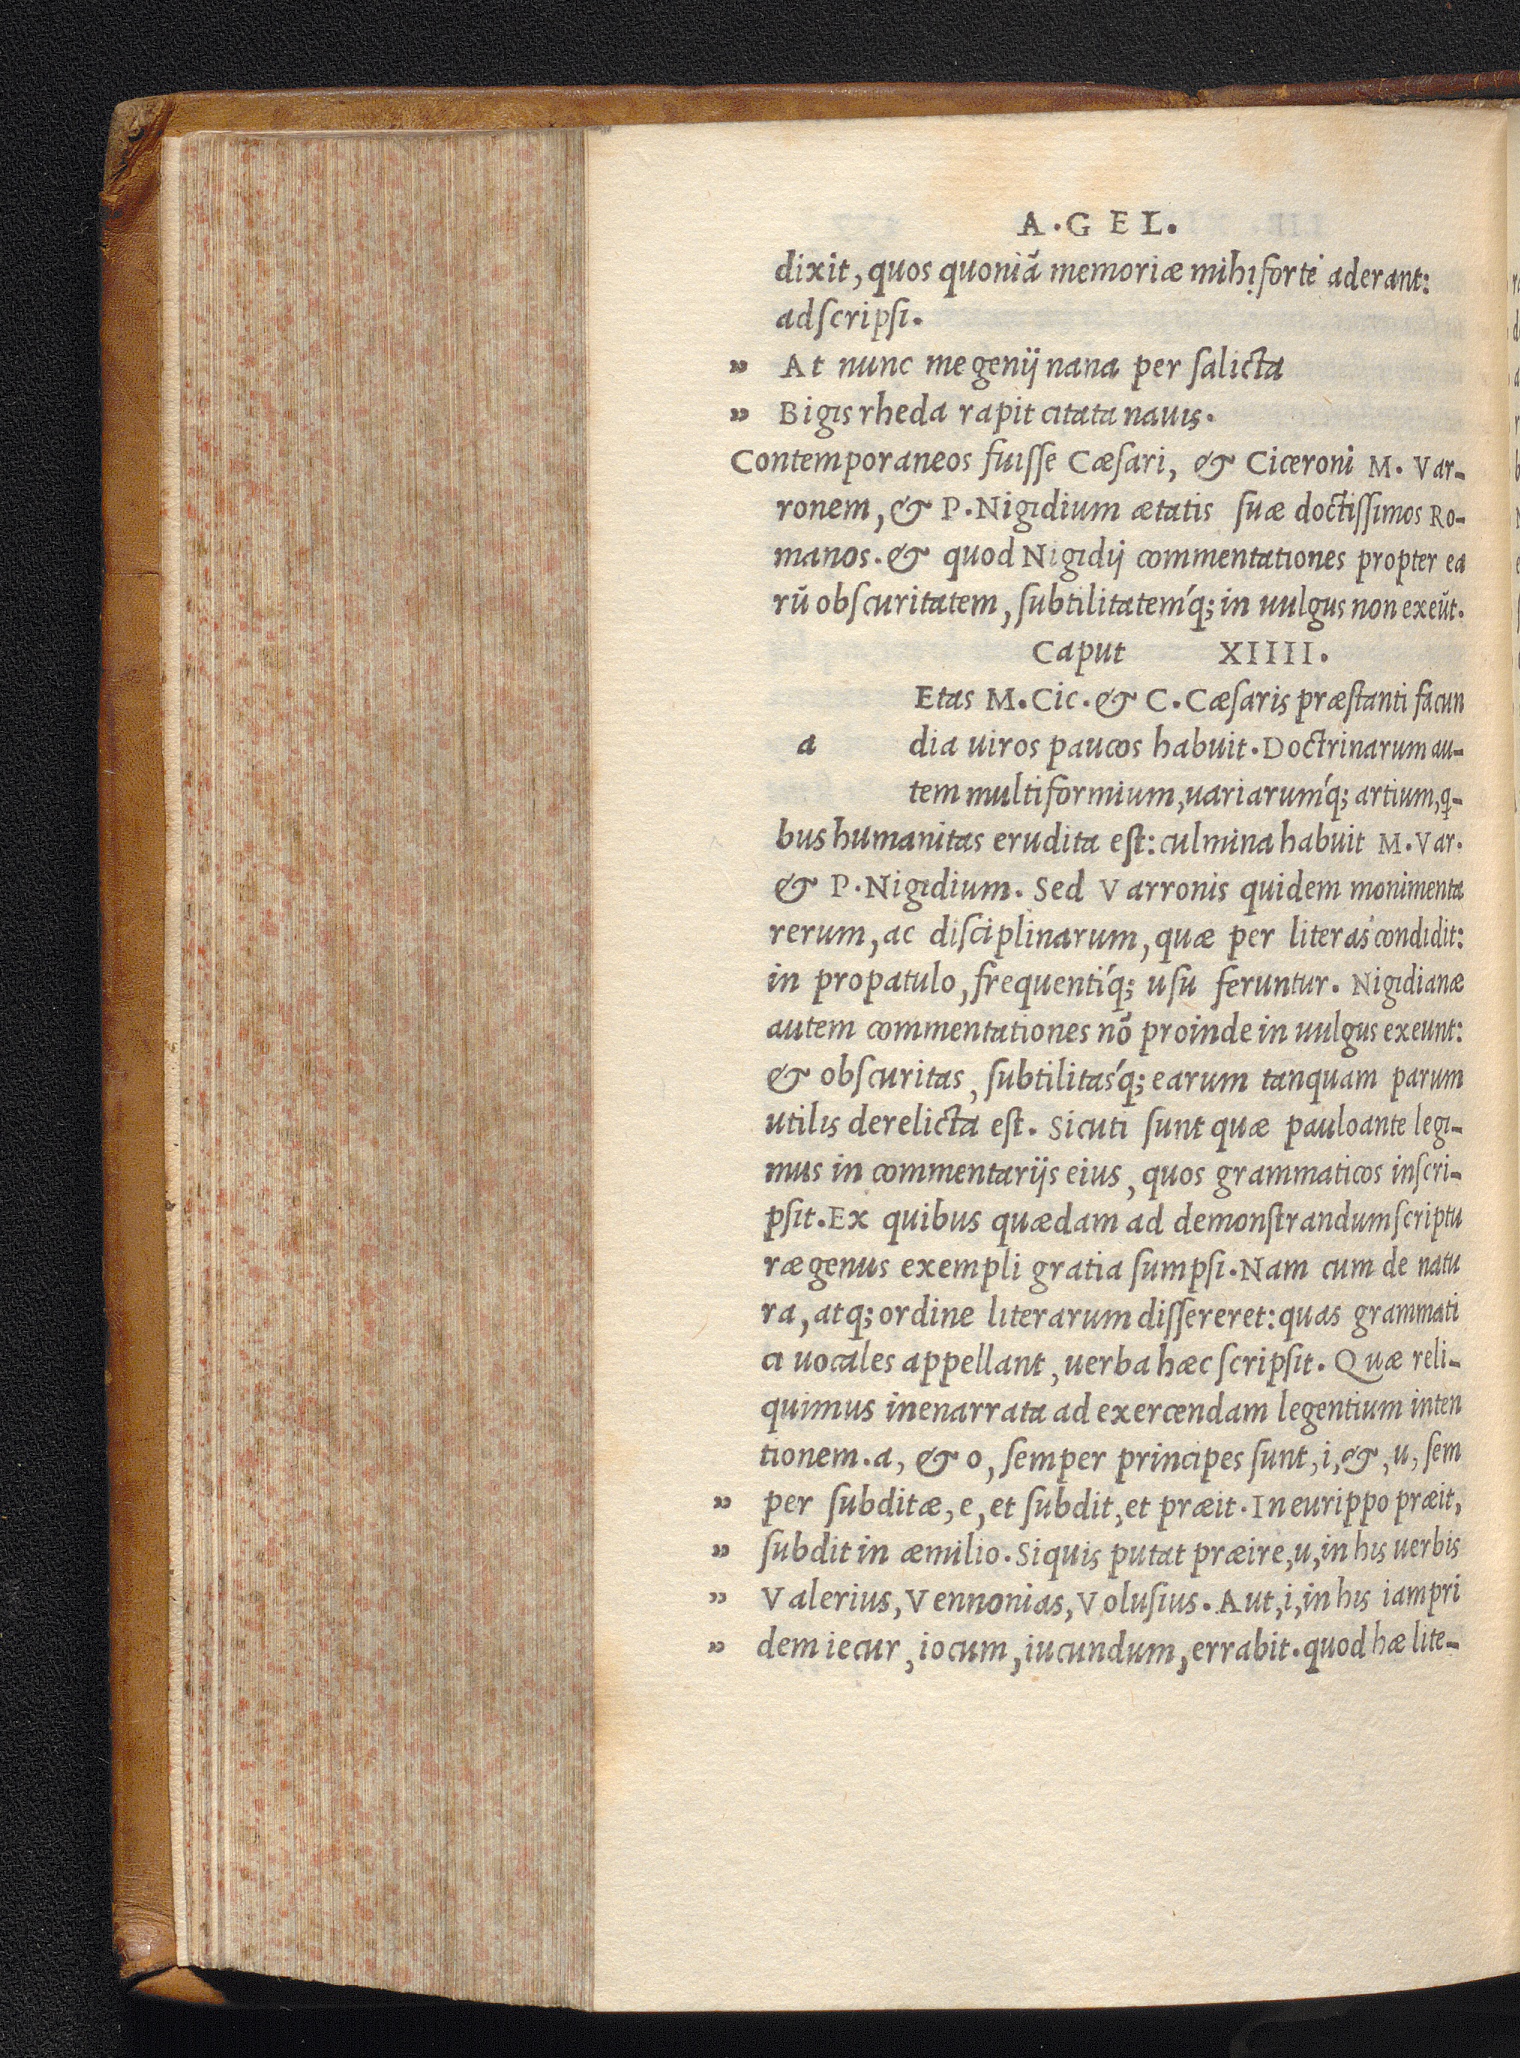 A.GEL.
dixit, quos quoniã memoriæ mihi forte aderant:
adſcripſi.
„ At nunc me genij nana per ſalicta
„ Bigis rheda rapit citata nauis.
Contemporaneos fuiſſe Cæſari, & Ciceroni M. Var-
ronem, & P. Nigidium ætatis ſuæ doctiſſimos Ro-
manos. & quod Nigidij commentationes propter ea
rũ obſcuritatem, ſubtilitateḿq; in uulgus non exeũt.
Caput XIIII.
Etas M. Cic. & C. Cæſaris præſtanti facun
a dia uiros paucos habuit. Doctrinarum au-
tem multiformium, uariaruḿq; artium, q-
bus humanitas erudita eſt: culmina habuit M. Var.
& P. Nigidium. Sed Varronis quidem monimenta
rerum, ac diſciplinarum, quæ per literas condidit:
in propatulo, frequentíq; uſu feruntur. Nigidianæ
autem commentationes nõ proinde in uulgus exeunt:
& obſcuritas, ſubtilitaſ́q; earum tanquam parum
utilis derelicta eſt. Sicuti ſunt quæ pauloante legi-
mus in commentarijs eius, quos grammaticos inſcri-
pſit. Ex quibus quædam ad demonſtrandum ſcriptu
ræ genus exempli gratia ſumpſi. Nam cum de natu
ra, atq; ordine literarum diſſereret: quas grammati
ci uocales appellant, uerba hæc ſcripſit. Quæ reli-
quimus inenarrata ad exercendam legentium inten
tionem. a, & o, ſemper principes ſunt, i, &, u, ſem
„ per ſubditæ, e, et ſubdit, et præit. In eurippo præit,
„ ſubdit in æmilio. Siquis putat præire, u, in his uerbis
„ Valerius, Vennonias, Voluſius. Aut, i, in his iampri
„ dem iecur, iocum, iucundum, errabit. quod hæ lite-